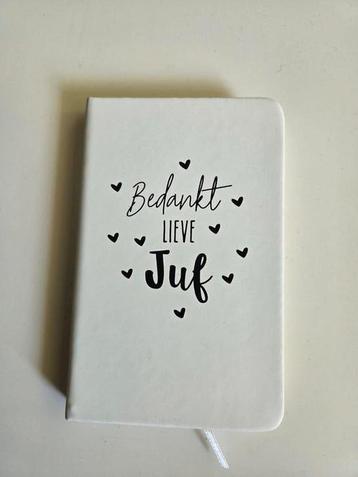 Bedankt
LIEVE
Juf